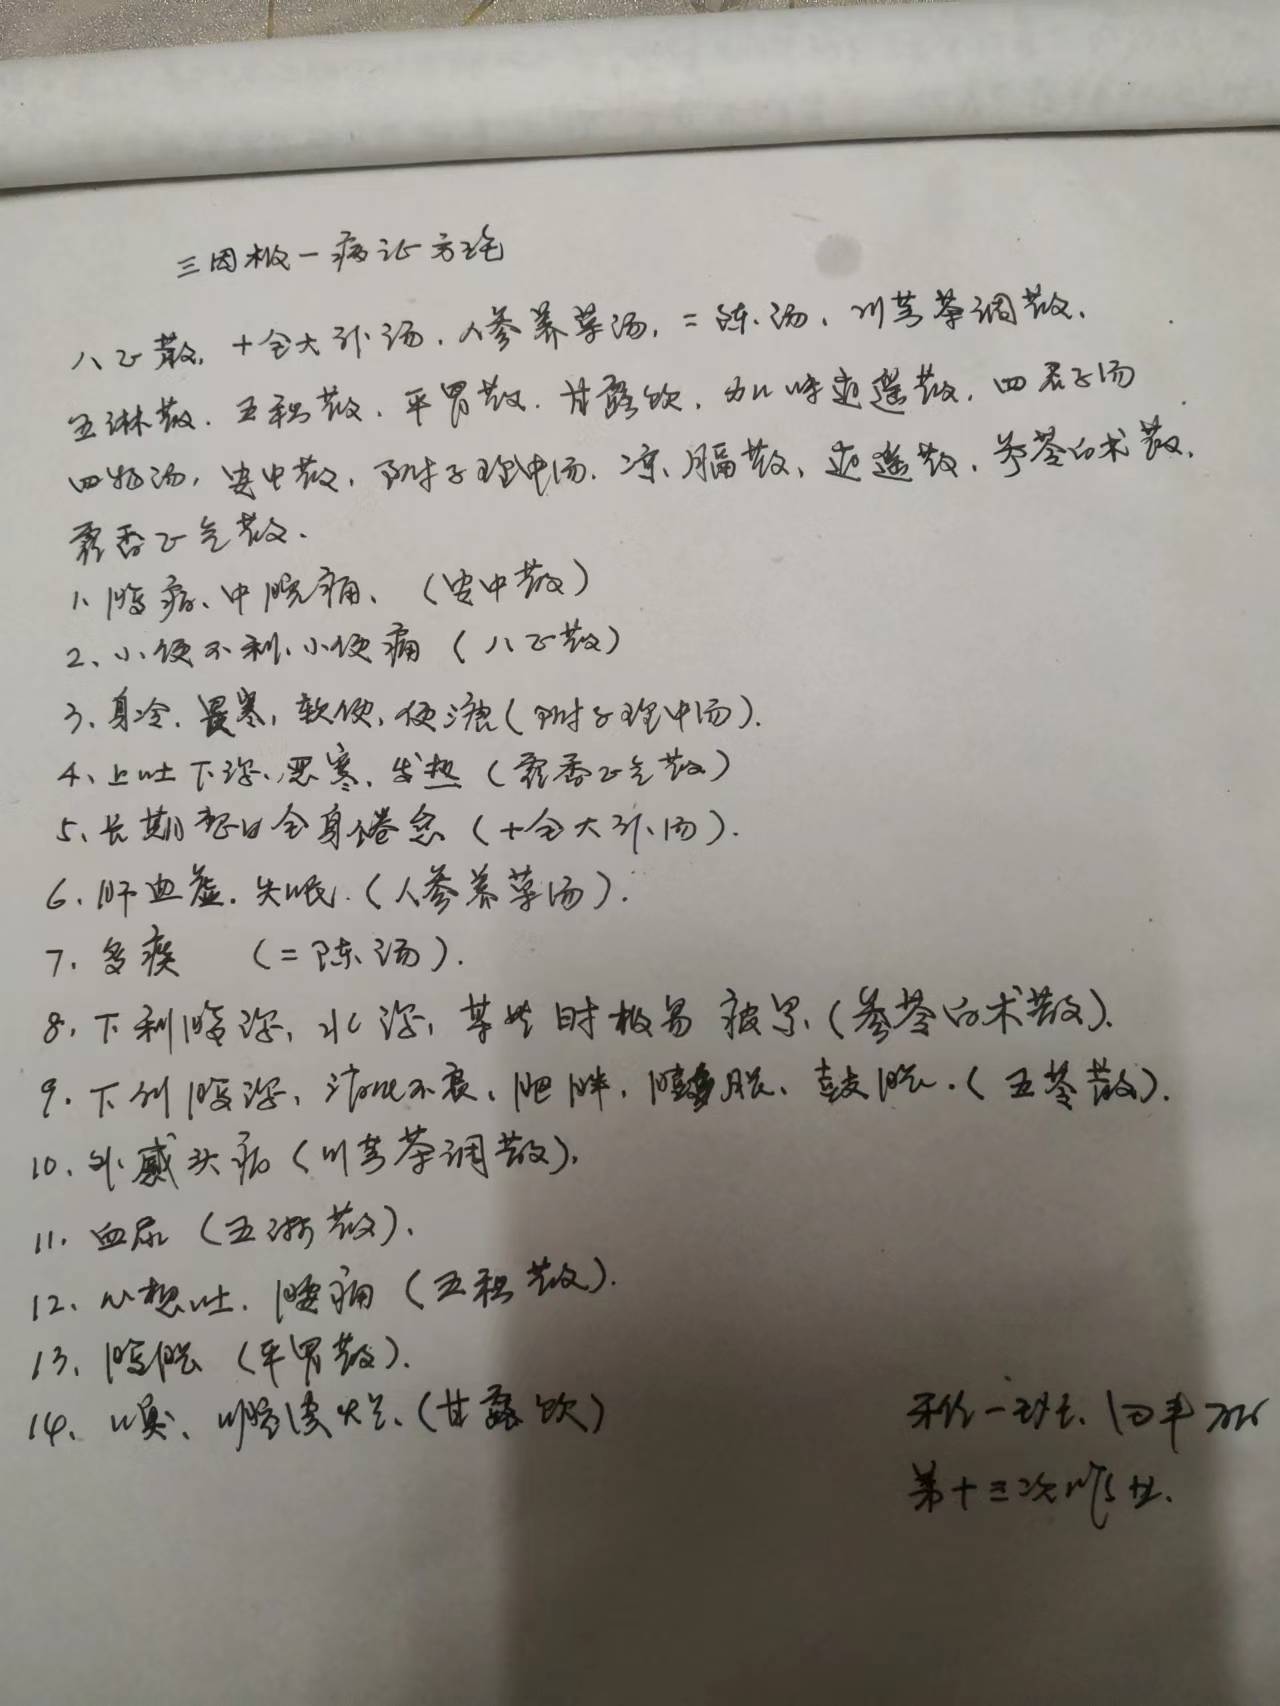 三因极一病证方论
八正散,十全大补汤.人参养荣汤,二陈汤.川芎茶调散.
五淋散.五积散.平胃散.甘露饮.加味逍遥散.四君子汤
四物汤,安中散,附子理中汤.凉膈散,逍遥散,参苓白术散.
藿香正气散.
1、腹痛、中脘痛、(安中散)
2、小便不利、小便痛(八正散)
3、身冷.畏寒,软便,便溏(附子理中汤).
4、上吐下泻、恶寒、发热(藿香正气散)
5、长期整日全身倦怠(十全大补汤).
6、肝血虚.失眠.(人参养荣汤).
7.多痰 (二陈汤).
8,下利腹泻,水泻,某些时极易疲累,(参苓白术散).
9.下利腹泻,消化不良,肥胖,膨胀、鼓胀.(五苓散).
10.外感头痛(川芎茶调散).
11.血尿(五淋散).
12.心想吐.腰痛(五积散).
13.腹胀(平胃散).
14.口臭、口腔溃烂、(甘露饮)
一班、
第十三次作业.